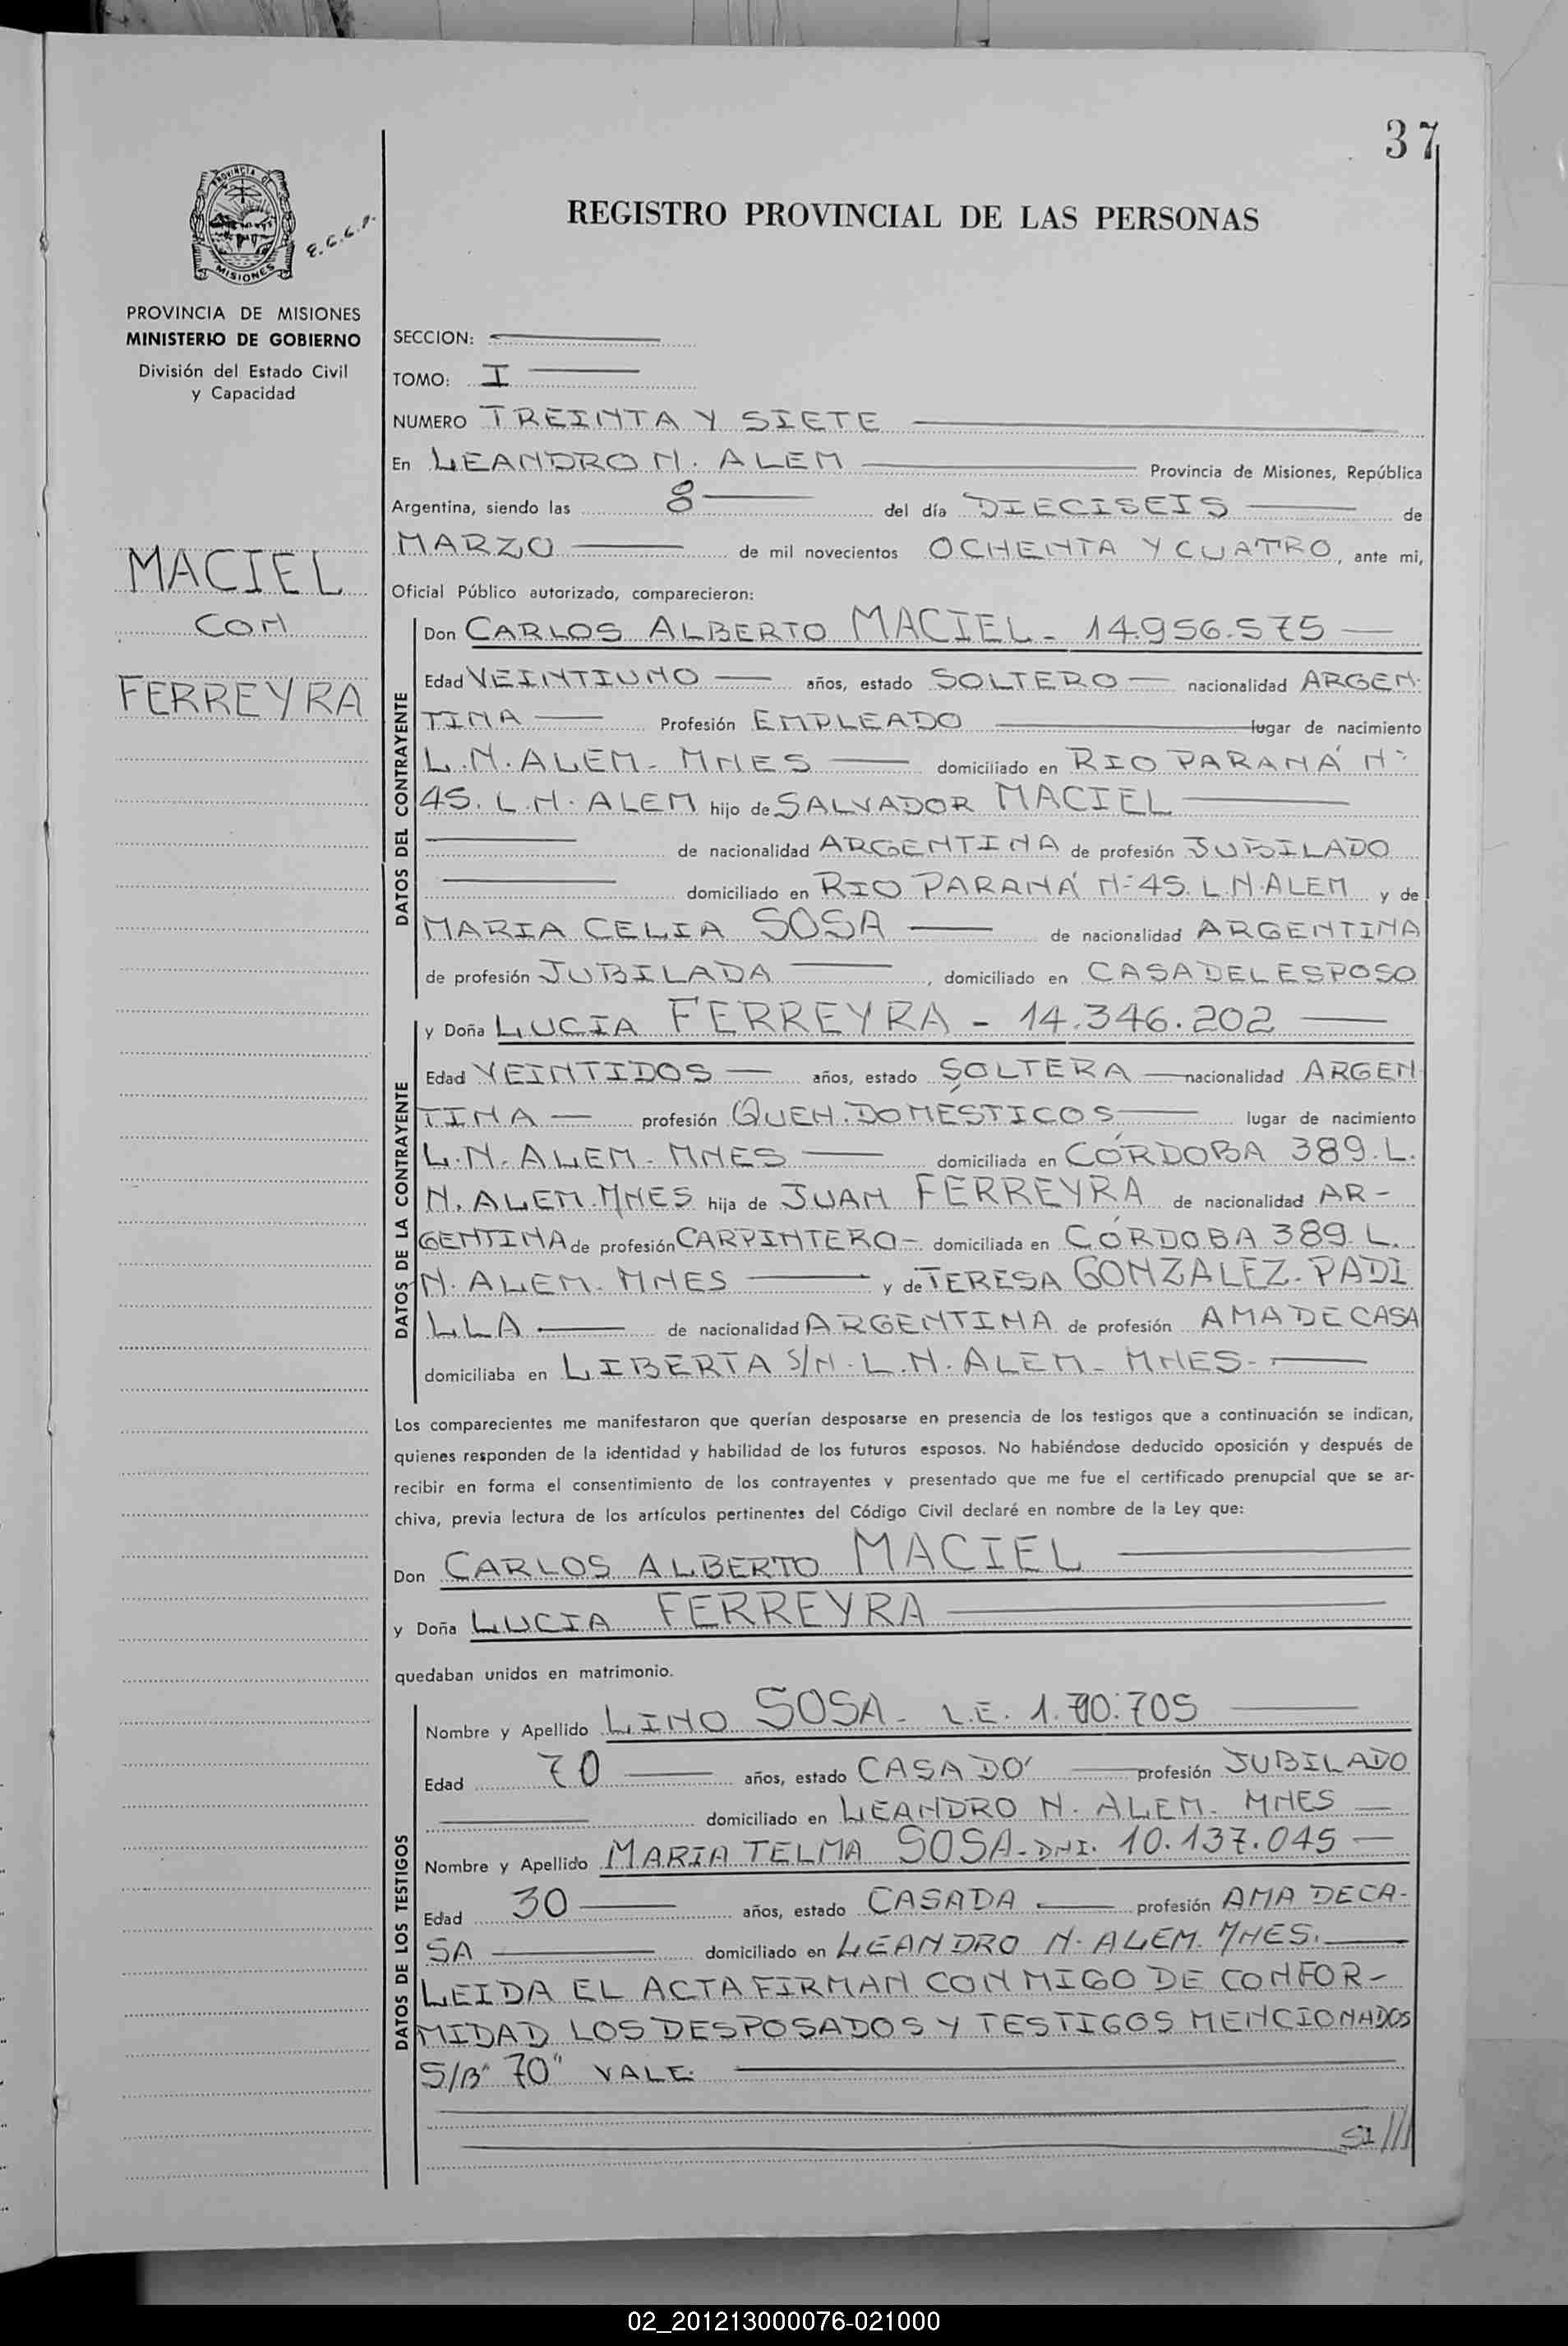 37
PROVINCIA DE
MISIONES
REGISTRO PROVINCIAL DE LAS PERSONAS
PROVINCIA DE MISIONES
MINISTERIO DE GOBIERNO
División del Estado Civil
y Capacidad
MACIEL
CON
FERREYRA
SECCION:
TOMO: I
NUMERO TREINTA Y SIETE
En LEANDRO N. ALEM Provincia de Misiones, República
Argentina, siendo las 8 del día DIECISEIS de
MARZO de mil novecientos OCHENTA Y CUATRO, ante mi,
Oficial Público autorizado, comparecieron:
DATOS DEL CONTRAYENTE
Don CARLOS ALBERTO MACIEL - 14.956.575
Edad VEINTIUNO años, estado SOLTERO nacionalidad ARGEN-
TINA Profesión EMPLEADO lugar de nacimiento
L.N. ALEM - MNES domiciliado en RIO PARANÁ Nº
45. L.N. ALEM hijo de SALVADOR MACIEL
de nacionalidad ARGENTINA de profesión JUBILADO
domiciliado en RIO PARANÁ Nº 45. L.N. ALEM y de
MARIA CELIA SOSA de nacionalidad ARGENTINA
de profesión JUBILADA, domiciliado en CASA DEL ESPOSO
DATOS DE LA CONTRAYENTE
y Doña LUCIA FERREYRA - 14.346.202
Edad VEINTIDOS años, estado SOLTERA nacionalidad ARGEN
TINA profesión QUEH. DOMÉSTICOS lugar de nacimiento
L.N. ALEM - MNES domiciliada en CÓRDOBA 389. L.
N. ALEM. MNES hija de JUAN FERREYRA de nacionalidad AR-
GENTINA de profesión CARPINTERO - domiciliada en CÓRDOBA 389. L.
N. ALEM - MNES y de TERESA GONZALEZ - PADI
LLA de nacionalidad ARGENTINA de profesión AMA DE CASA
domiciliaba en LIBERTA S/N. L.N. ALEM - MNES -
Los comparecientes me manifestaron que querían desposarse en presencia de los testigos que a continuación se indican,
quienes responden de la identidad y habilidad de los futuros esposos. No habiéndose deducido oposición y después de
recibir en forma el consentimiento de los contrayentes y presentado que me fue el certificado prenupcial que se ar-
chiva, previa lectura de los artículos pertinentes del Código Civil declaré en nombre de la Ley que:
Don CARLOS ALBERTO MACIEL
y Doña LUCIA FERREYRA
quedaban unidos en matrimonio.
DATOS DE LOS TESTIGOS
Nombre y Apellido LINO SOSA - L.E. 1.70.705
Edad 70 años, estado CASADO profesión JUBILADO
domiciliado en LEANDRO N. ALEM - MNES
Nombre y Apellido MARIA TELMA SOSA - DNI. 10.137.045
Edad 30 años, estado CASADA profesión AMA DE CA-
SA domiciliado en LEANDRO N. ALEM. MNES.
LEIDA EL ACTA FIRMAN CONMIGO DE CONFOR-
MIDAD LOS DESPOSADOS Y TESTIGOS MENCIONADOS
S/B "70" VALE.
SI///
02_201213000076-021000